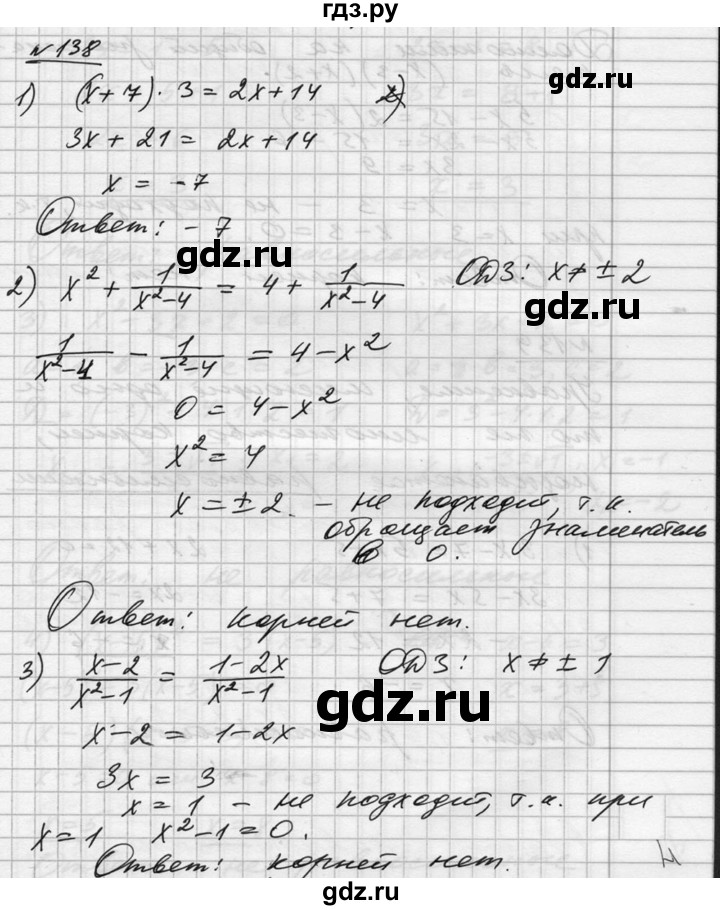 гдз.ру
№ 138
1) (x+7) · 3 = 2x+14 2)
3x + 21 = 2x+14
x = -7
Ответ: -7
gdz.ru
2) x² + 1/(x²-4) = 4 + 1/(x²-4) ОДЗ: x ≠ ± 2
1/(x²-4) - 1/(x²-4) = 4 - x²
0 = 4 - x²
x² = 4
x = ± 2. – не подходит, т.к.
обращает знаменатель
в 0.
Ответ: корней нет.
3) (x-2)/(x²-1) = (1-2x)/(x²-1) ОДЗ: x ≠ ± 1
gdz.ru
x-2 = 1-2x
3x = 3
x = 1 – не подходит, т.к. при
x = 1 x²-1 = 0.
Ответ: корней нет.
gdz.ru